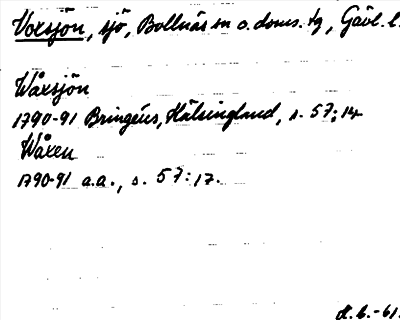 Voxsjön, sjö, Bollnäs sn o. doms. tg, Gävl. l.
Wåxsjön
1790-91 Bringéus, Hälsingland, s. 57:14
Wåxen
1790-91 a.a., s. 57:17.
d. b. -61.